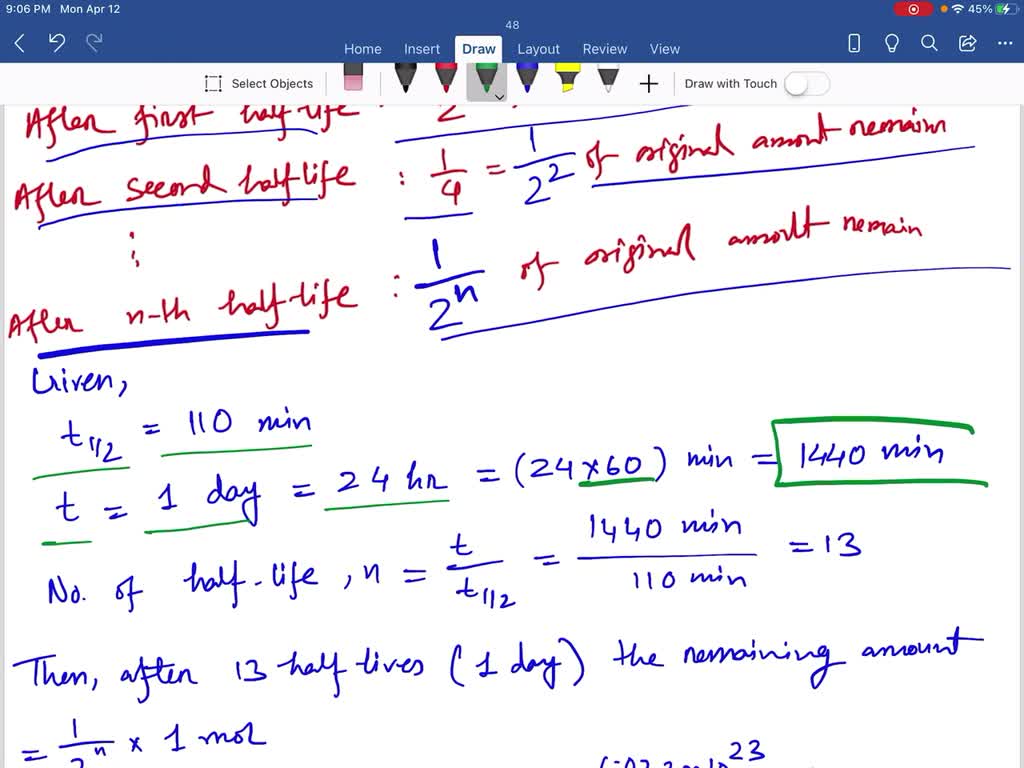 9:06 PM Mon Apr 12
45%
48
Home Insert Draw Layout Review View
Select Objects
Draw with Touch
After first half-life
After second half life : 1/4 = 1/2² of original amount remain
After n-th half-life : 1/2ⁿ of original amoult remain
Given,
t1/2 = 110 min
t = 1 day = 24 hr = (24×60) min = 1440 min
No. of half-life, n = t/t1/2 = 1440 min/110 min = 13
Then, after 13 half lives (1 day) the remaining amount
= 1/2ⁿ × 1 mol